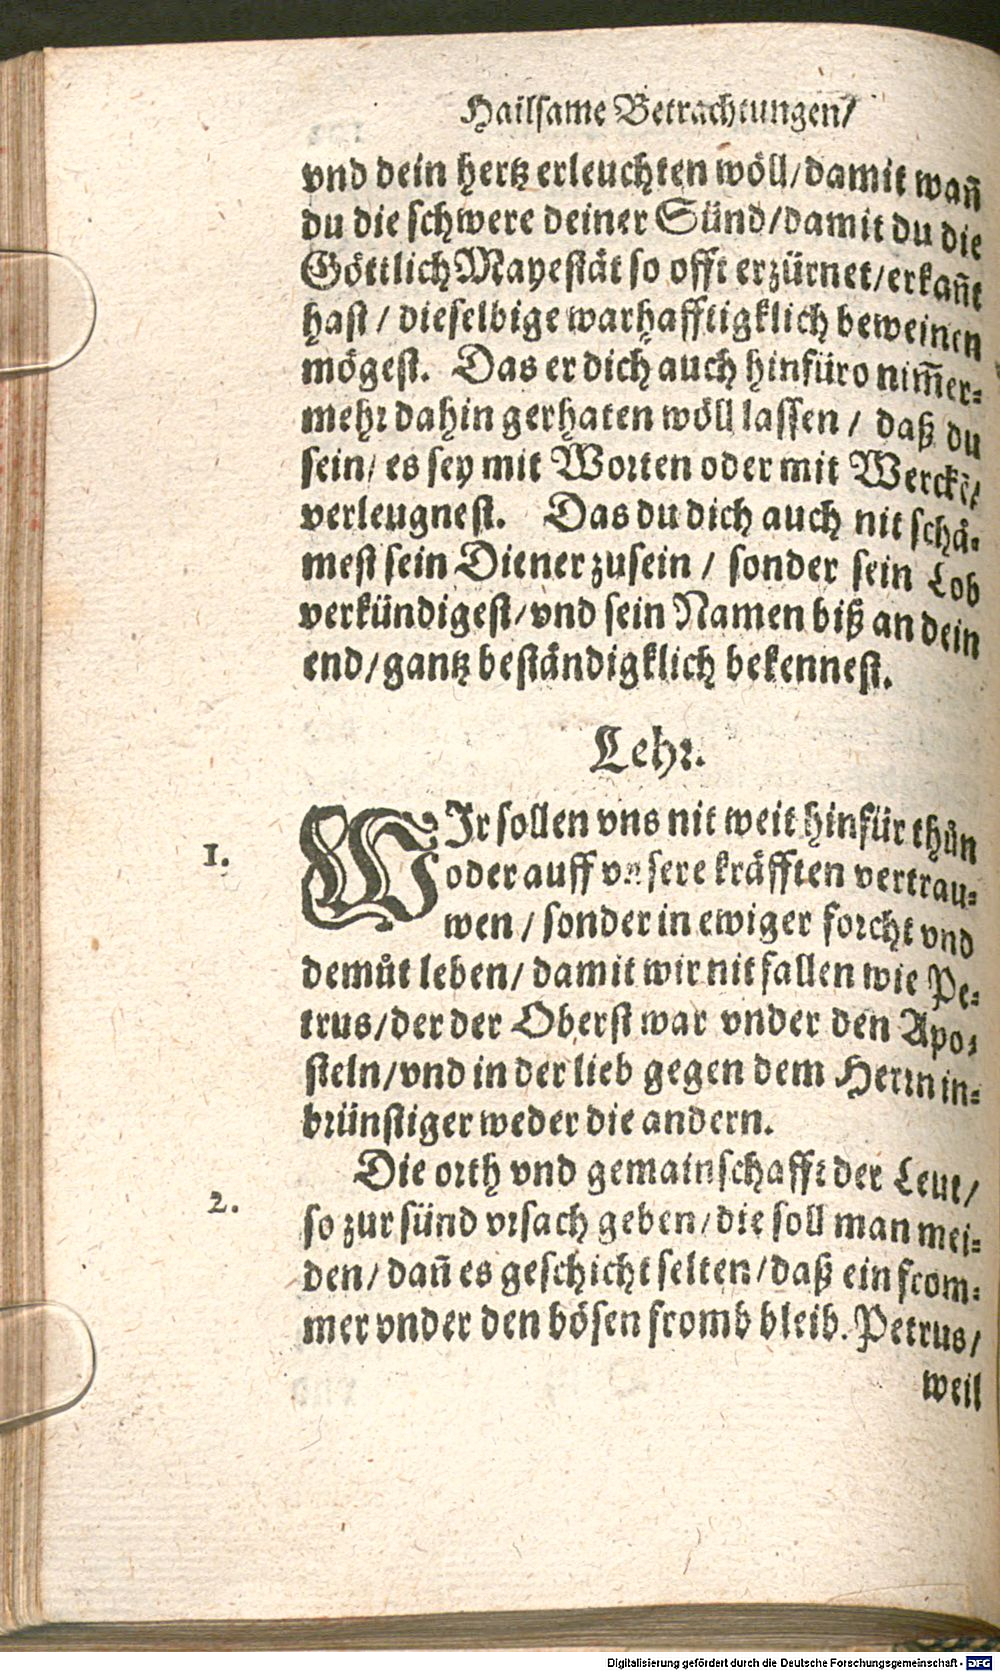 Hailsame Betrachtungen/
vnd dein hertz erleuchten wöll/damit wañ
du die schwere deiner Sünd/damit du die
Göttlich Mayestät so offt erzürnet/erkañt
hast / dieselbige warhafftigklich beweinen
mögest. Das er dich auch hinfüro nim̃er-
mehr dahin gerhaten wöll lassen / daß du
sein/ es sey mit Worten oder mit Werckẽ/
verleugnest. Das du dich auch nit schä-
mest sein Diener zusein / sonder sein Lob
verkündigest/vnd sein Namen biß an dein
end/gantz beständigklich bekennest.
Lehr.
1. WIr sollen vns nit weit hinfür thůn
oder auff vnsere kräfften vertrau-
wen / sonder in ewiger forcht vnd
demůt leben/ damit wir nit fallen wie Pe-
trus/der der Oberst war vnder den Apo-
steln/vnd in der lieb gegen dem Herrn in-
brünstiger weder die andern.
2. Die orth vnd gemainschafft der Leut/
so zur sünd vrsach geben/die soll man mei-
den/ dañ es geschicht selten/daß ein from-
mer vnder den bösen fromb bleib. Petrus/
weil
Digitalisierung gefördert durch die Deutsche Forschungsgemeinschaft - DFG